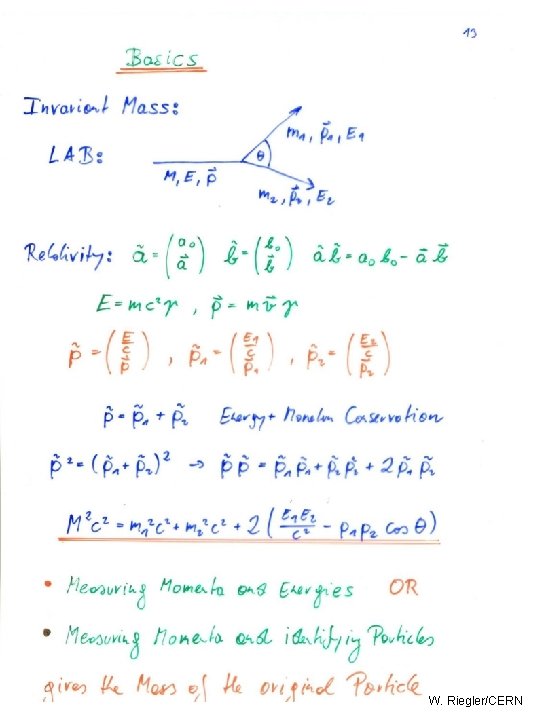 19
Basics
Invariant Mass:
m₁, p⃗₁, E₁
LAB:
θ
M, E, p⃗
m₂, p⃗₂, E₂
Relativity: ã = (a₀ / a⃗) b̃ = (b₀ / b⃗) ã b̃ = a₀ b₀ - a⃗ b⃗
E = mc²γ , p⃗ = m v⃗ γ
p̃ = (E/c / p⃗) , p̃₁ = (E₁/c / p⃗₁) , p̃₂ = (E₂/c / p⃗₂)
p̃ = p̃₁ + p̃₂ Energy + Momentum Conservation
p̃² = (p̃₁ + p̃₂)² → p̃ p̃ = p̃₁ p̃₁ + p̃₂ p̃₂ + 2 p̃₁ p̃₂
M²c² = m₁²c² + m₂²c² + 2 (E₁E₂/c² - p₁p₂ cos θ)
• Measuring Momenta and Energies OR
• Measuring Momenta and identifying Particles
gives the Mass of the original Particle
W. Riegler/CERN